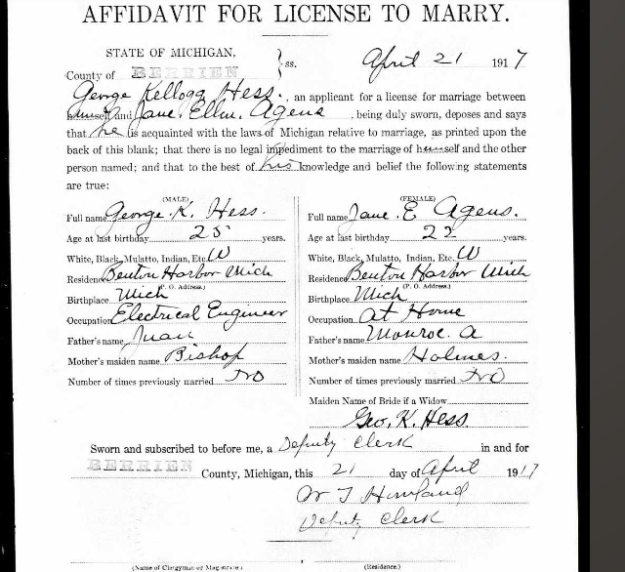 AFFIDAVIT FOR LICENSE TO MARRY.
STATE OF MICHIGAN, } ss. April 21 1917
County of BERRIEN
George Kellogg Hess, an applicant for a license for marriage between
himself and Jane Ellen Agens, being duly sworn, deposes and says
that he is acquainted with the laws of Michigan relative to marriage, as printed upon the
back of this blank; that there is no legal impediment to the marriage of himself and the other
person named; and that to the best of his knowledge and belief the following statements
are true:
(MALE)
Full name George K. Hess.
Age at last birthday 25 years.
White, Black, Mulatto, Indian, Etc. W
Residence Benton Harbor Mich
(P. O. Address.)
Birthplace Mich
Occupation Electrical Engineer
Father's name
Mother's maiden name Bishop
Number of times previously married No
(FEMALE)
Full name Jane E Agens.
Age at last birthday 22 years.
White, Black, Mulatto, Indian, Etc. W
Residence Benton Harbor Mich
(P. O. Address.)
Birthplace Mich
Occupation At Home
Father's name Monroe A
Mother's maiden name Holmes.
Number of times previously married No
Maiden Name of Bride if a Widow
Geo. K. Hess.
Sworn and subscribed to before me, a Deputy Clerk in and for
BERRIEN County, Michigan, this 21 day of April 1917
W T Howland
Deputy Clerk
(Name of Clergyman or Magistrate) (Residence.)